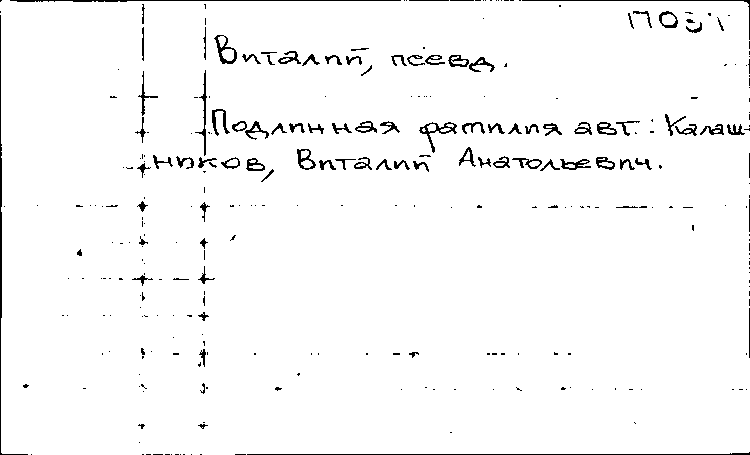 ПОЭТ
Виталий, псевд.
Подлинная фамилия авт.: Калаш-
ников, Виталий Анатольевич.